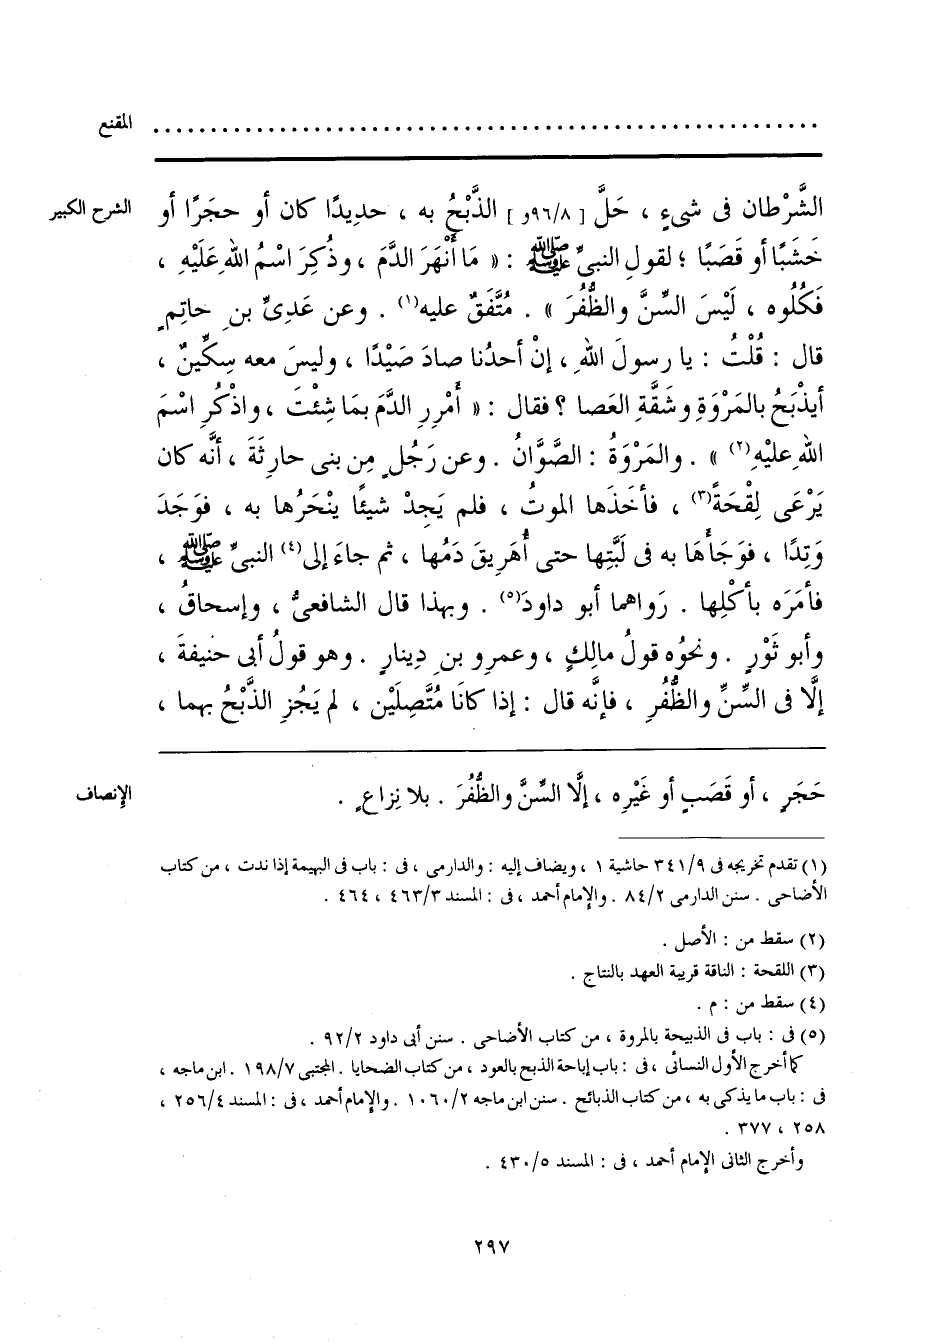 المقنع ............................................................
الشرح الكبير
الشَّرْطان فى شىءٍ ، حَلَّ [ ٩٦/٨و ] الذَّبْحُ به ، حديدًا كان أو حجَرًا أو
خَشَبًا أو قَصَبًا ؛ لقولِ النبىِّ ﷺ : « مَا أَنْهَرَ الدَّمَ ، وذُكِرَ اسْمُ اللهِ عَلَيْهِ ،
فَكُلُوه ، لَيْسَ السِّنَّ والظُّفُرَ » . مُتَّفَقٌ عليه(١) . وعن عَدِىِّ بنِ حاتِمٍ
قال : قُلْتُ : يا رسولَ اللهِ ، إنْ أحدُنا صادَ صَيْدًا ، وليسَ معه سِكِّينٌ ،
أيذْبَحُ بالمَرْوَةِ وشَقَّةِ العَصا ؟ فقال : « أَمْرِرِ الدَّمَ بمَا شِئْتَ ، واذْكُرِ اسْمَ
اللهِ عليْهِ(٢) » . والمَرْوَةُ : الصَّوَّانُ . وعن رَجُلٍ مِن بنى حارِثَةَ ، أنَّه كان
يَرْعَى لِقْحَةً(٣) ، فأخَذَها الموتُ ، فلم يَجِدْ شيئًا يَنْحَرُها به ، فوَجَدَ
وَتِدًا ، فوَجَأَهَا به فى لَبَّتِها حتى أُهَرِيقَ دَمُها ، ثم جاءَ إلى(٤) النبىِّ ﷺ ،
فأمَرَه بأكْلِها . رَواهما أبو داودَ(٥) . وبهذا قال الشافعىُّ ، وإسحاقُ ،
وأبو ثَوْرٍ . ونحوُه قولُ مالِكٍ ، وعمرِو بنِ دِينارٍ . وهو قولُ أبى حنيفةَ ،
إلَّا فى السِّنِّ والظُّفُرِ ، فإنَّه قال : إذا كانَا مُتَّصِلَيْن ، لم يَجُزِ الذَّبْحُ بهما ،
الإنصاف
حَجَرٍ ، أو قَصَبٍ أو غَيْرِه ، إلَّا السِّنَّ والظُّفُرَ . بلا نِزاعٍ .
(١) تقدم تخريجه فى ٣٤١/٩ حاشية ١ ، ويضاف إليه : والدارمى ، فى : باب فى البهيمة إذا ندت ، من كتاب
الأضاحى . سنن الدارمى ٨٤/٢ . والإمام أحمد ، فى : المسند ٤٦٣/٣ ، ٤٦٤ .
(٢) سقط من : الأصل .
(٣) اللقحة : الناقة قريبة العهد بالنتاج .
(٤) سقط من : م .
(٥) فى : باب فى الذبيحة بالمروة ، من كتاب الأضاحى . سنن أبى داود ٩٢/٢ .
كما أخرج الأول النسائى ، فى : باب إباحة الذبح بالعود ، من كتاب الضحايا . المجتبى ١٩٨/٧ . ابن ماجه ،
فى : باب ما يذكى به ، من كتاب الذبائح . سنن ابن ماجه ١٠٦٠/٢ . والإمام أحمد ، فى : المسند ٢٥٦/٤ ،
٢٥٨ ، ٣٧٧ .
وأخرج الثانى الإمام أحمد ، فى : المسند ٤٣٠/٥ .
٢٩٧